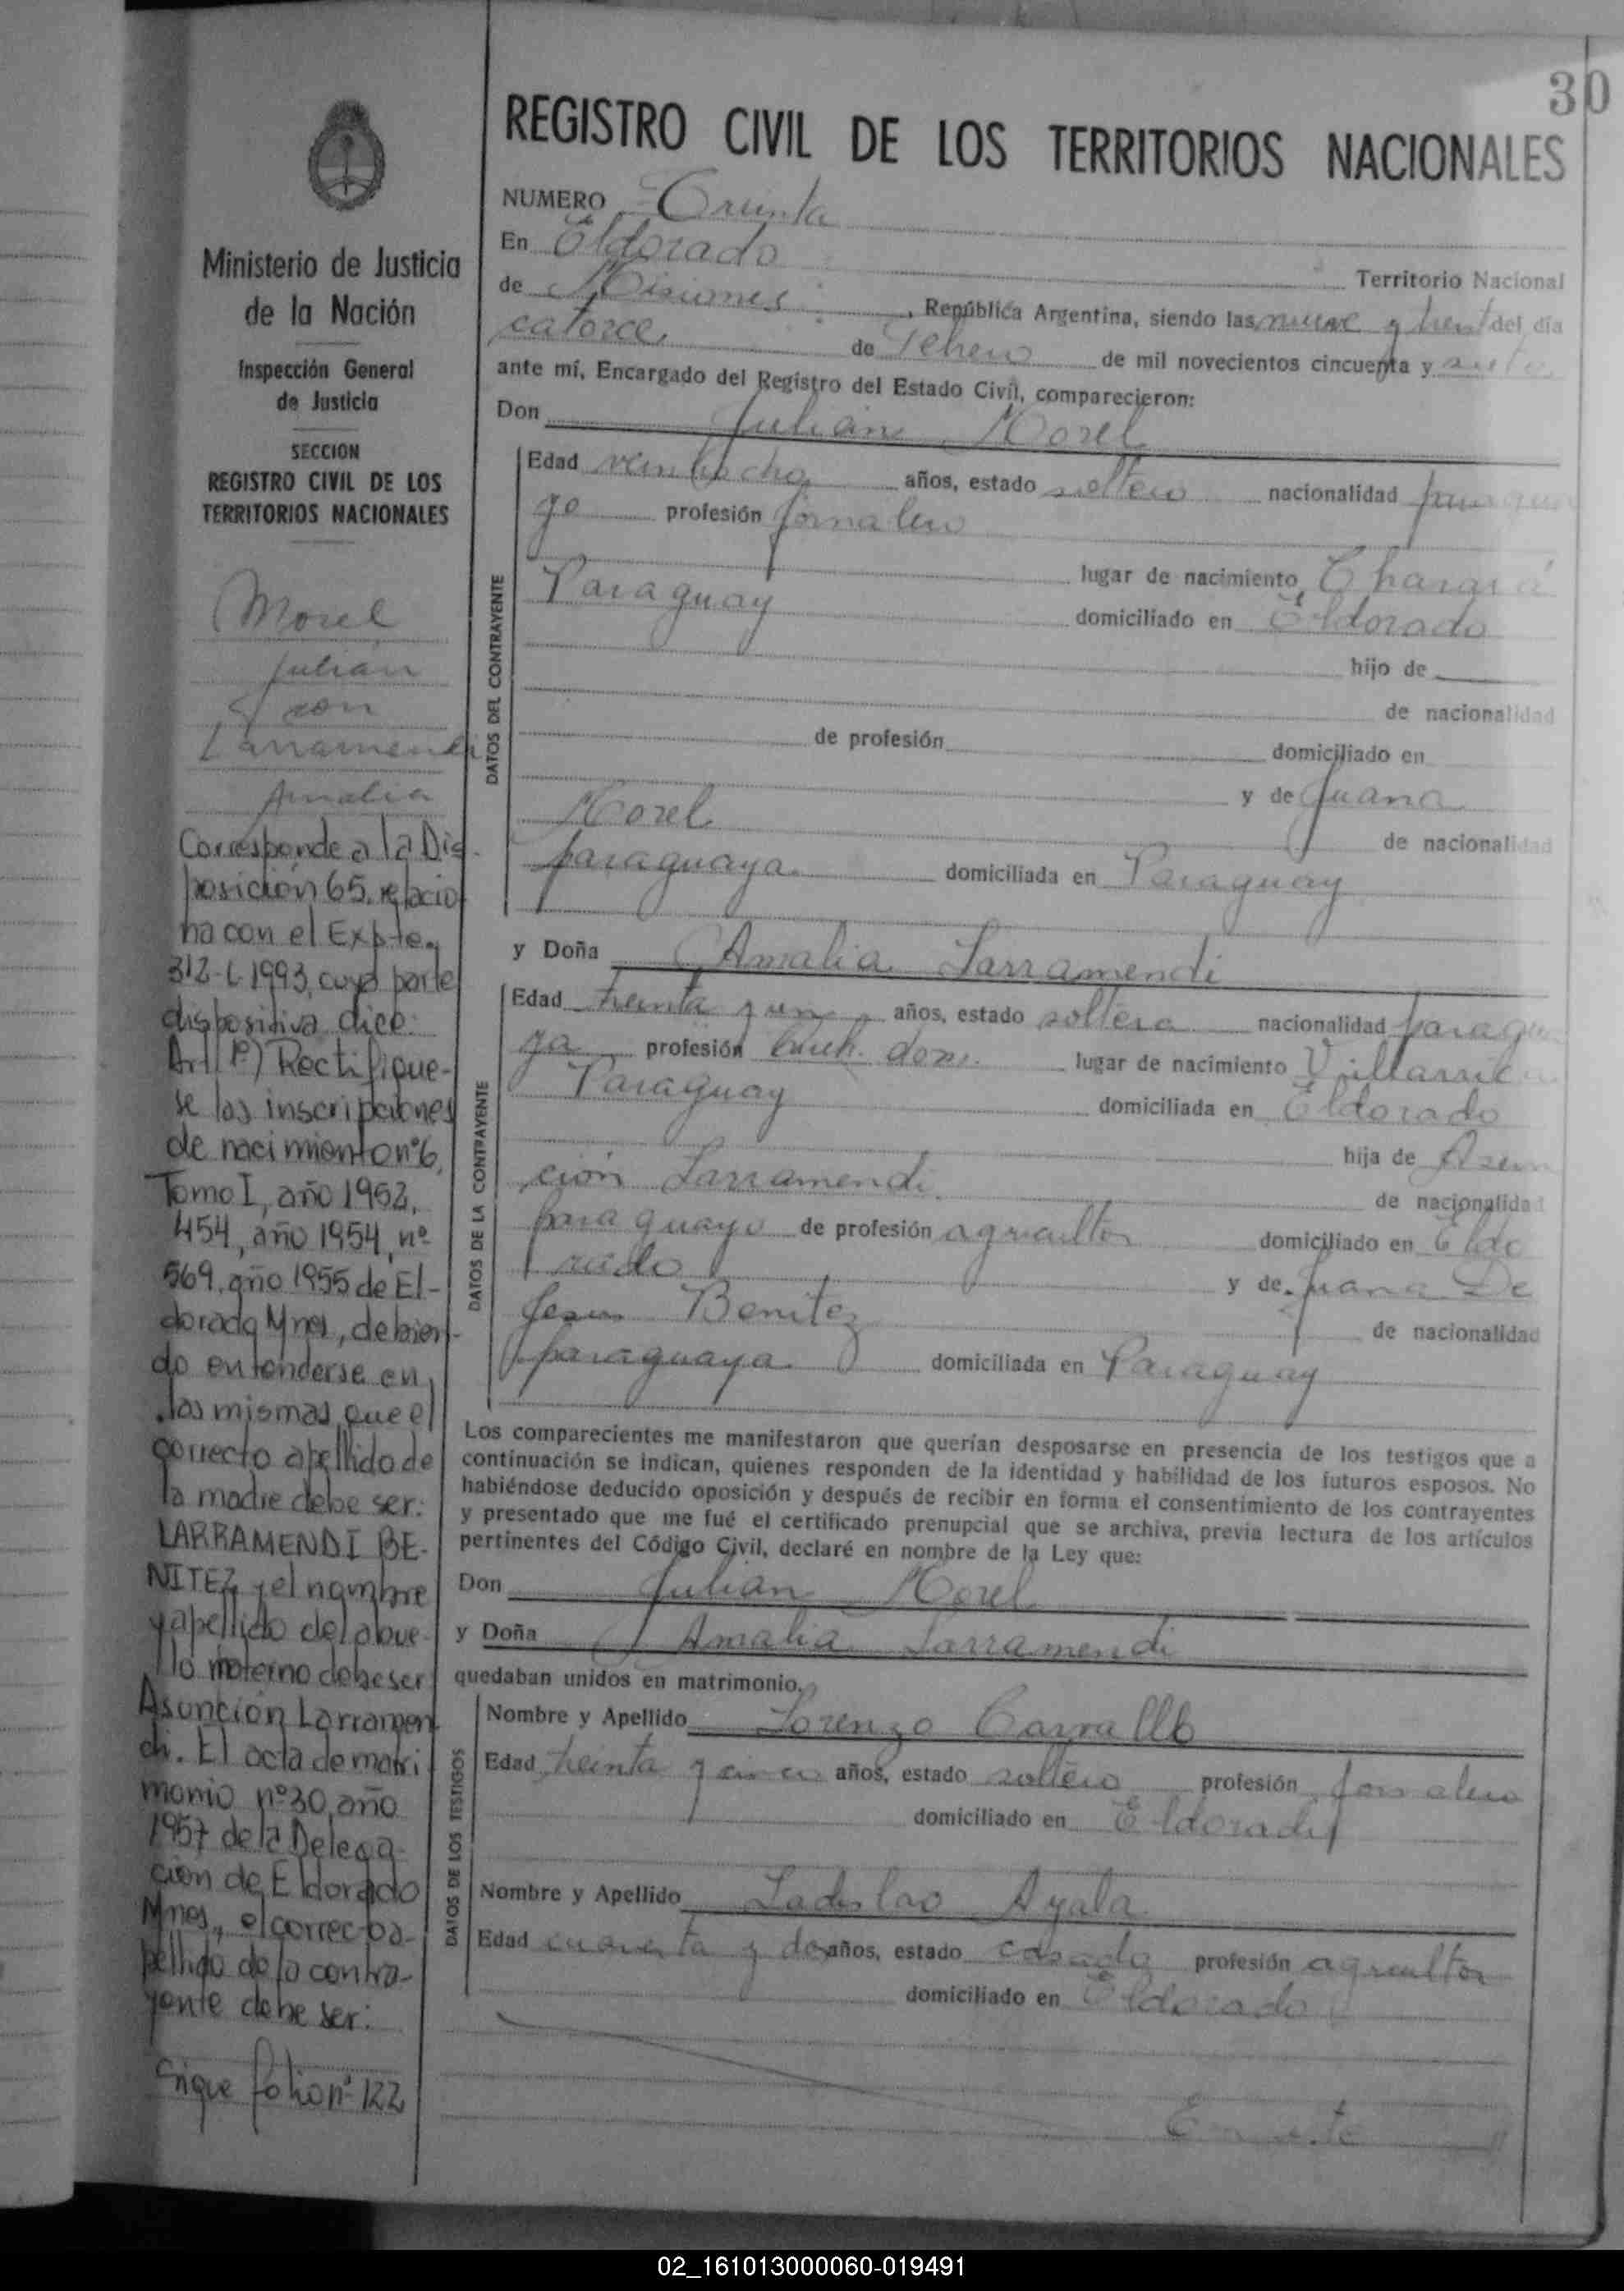 30
REGISTRO CIVIL DE LOS TERRITORIOS NACIONALES
Ministerio de Justicia
de la Nación
Inspección General
de Justicia
SECCION
REGISTRO CIVIL DE LOS
TERRITORIOS NACIONALES
Morel
Julian
con
Larramendi
Amalia
Corresponde a la Dis-
posición 65, relacio
na con el Expte.
312-L-1993, cuya parte
dispositiva dice:
Art 1º) Rectifique-
se las inscripciones
de nacimiento nº6,
Tomo I, año 1953,
454, año 1954, nº
569, año 1955 de El-
dorado Mnes, debien-
do entenderse en
las mismas que el
correcto apellido de
la madre debe ser:
LARRAMENDI BE-
NITEZ y el nombre
y apellido del abue-
lo materno debe ser
Asunción Larramen
di. El acta de matri
monio nº30, año
1957 de la Delega-
ción de Eldorado
Mnes, el correc-to a-
pellido de la contra-
yente debe ser:
Sigue folio nº 122
NUMERO Treinta
En Eldorado
Territorio Nacional
de Misiones, República Argentina, siendo las nueve y treint del día
catorce de Febrero de mil novecientos cincuenta y siete
ante mí, Encargado del Registro del Estado Civil, comparecieron:
Don Julian Morel
DATOS DEL CONTRAYENTE
Edad veintiocho años, estado soltero nacionalidad paragua
yo profesión jornalero
lugar de nacimiento Charará
Paraguay domiciliado en Eldorado
hijo de
de nacionalidad
de profesión domiciliado en
y de Juana
Morel de nacionalidad
paraguaya domiciliada en Paraguay
y Doña Amalia Larramendi
DATOS DE LA CONTRAYENTE
Edad treinta y un años, estado soltera nacionalidad paragua
ya profesión queh. dom. lugar de nacimiento Villarrica
Paraguay domiciliada en Eldorado
hija de Asun
ción Larramendi de nacionalidad
paraguayo de profesión agricultor domiciliado en Eldo
rado y de Juana De
Jesus Benitez de nacionalidad
paraguaya domiciliada en Paraguay
Los comparecientes me manifestaron que querían desposarse en presencia de los testigos que a
continuación se indican, quienes responden de la identidad y habilidad de los futuros esposos. No
habiéndose deducido oposición y después de recibir en forma el consentimiento de los contrayentes
y presentado que me fué el certificado prenupcial que se archiva, previa lectura de los artículos
pertinentes del Código Civil, declaré en nombre de la Ley que:
Don Julian Morel
y Doña Amalia Larramendi
quedaban unidos en matrimonio.
DATOS DE LOS TESTIGOS
Nombre y Apellido Lorenzo Carvallo
Edad treinta y cinco años, estado soltero profesión jornalero
domiciliado en Eldorado
Nombre y Apellido Ladislao Ayala
Edad cuarenta y dos años, estado casado profesión agricultor
domiciliado en Eldorado
02_161013000060-019491